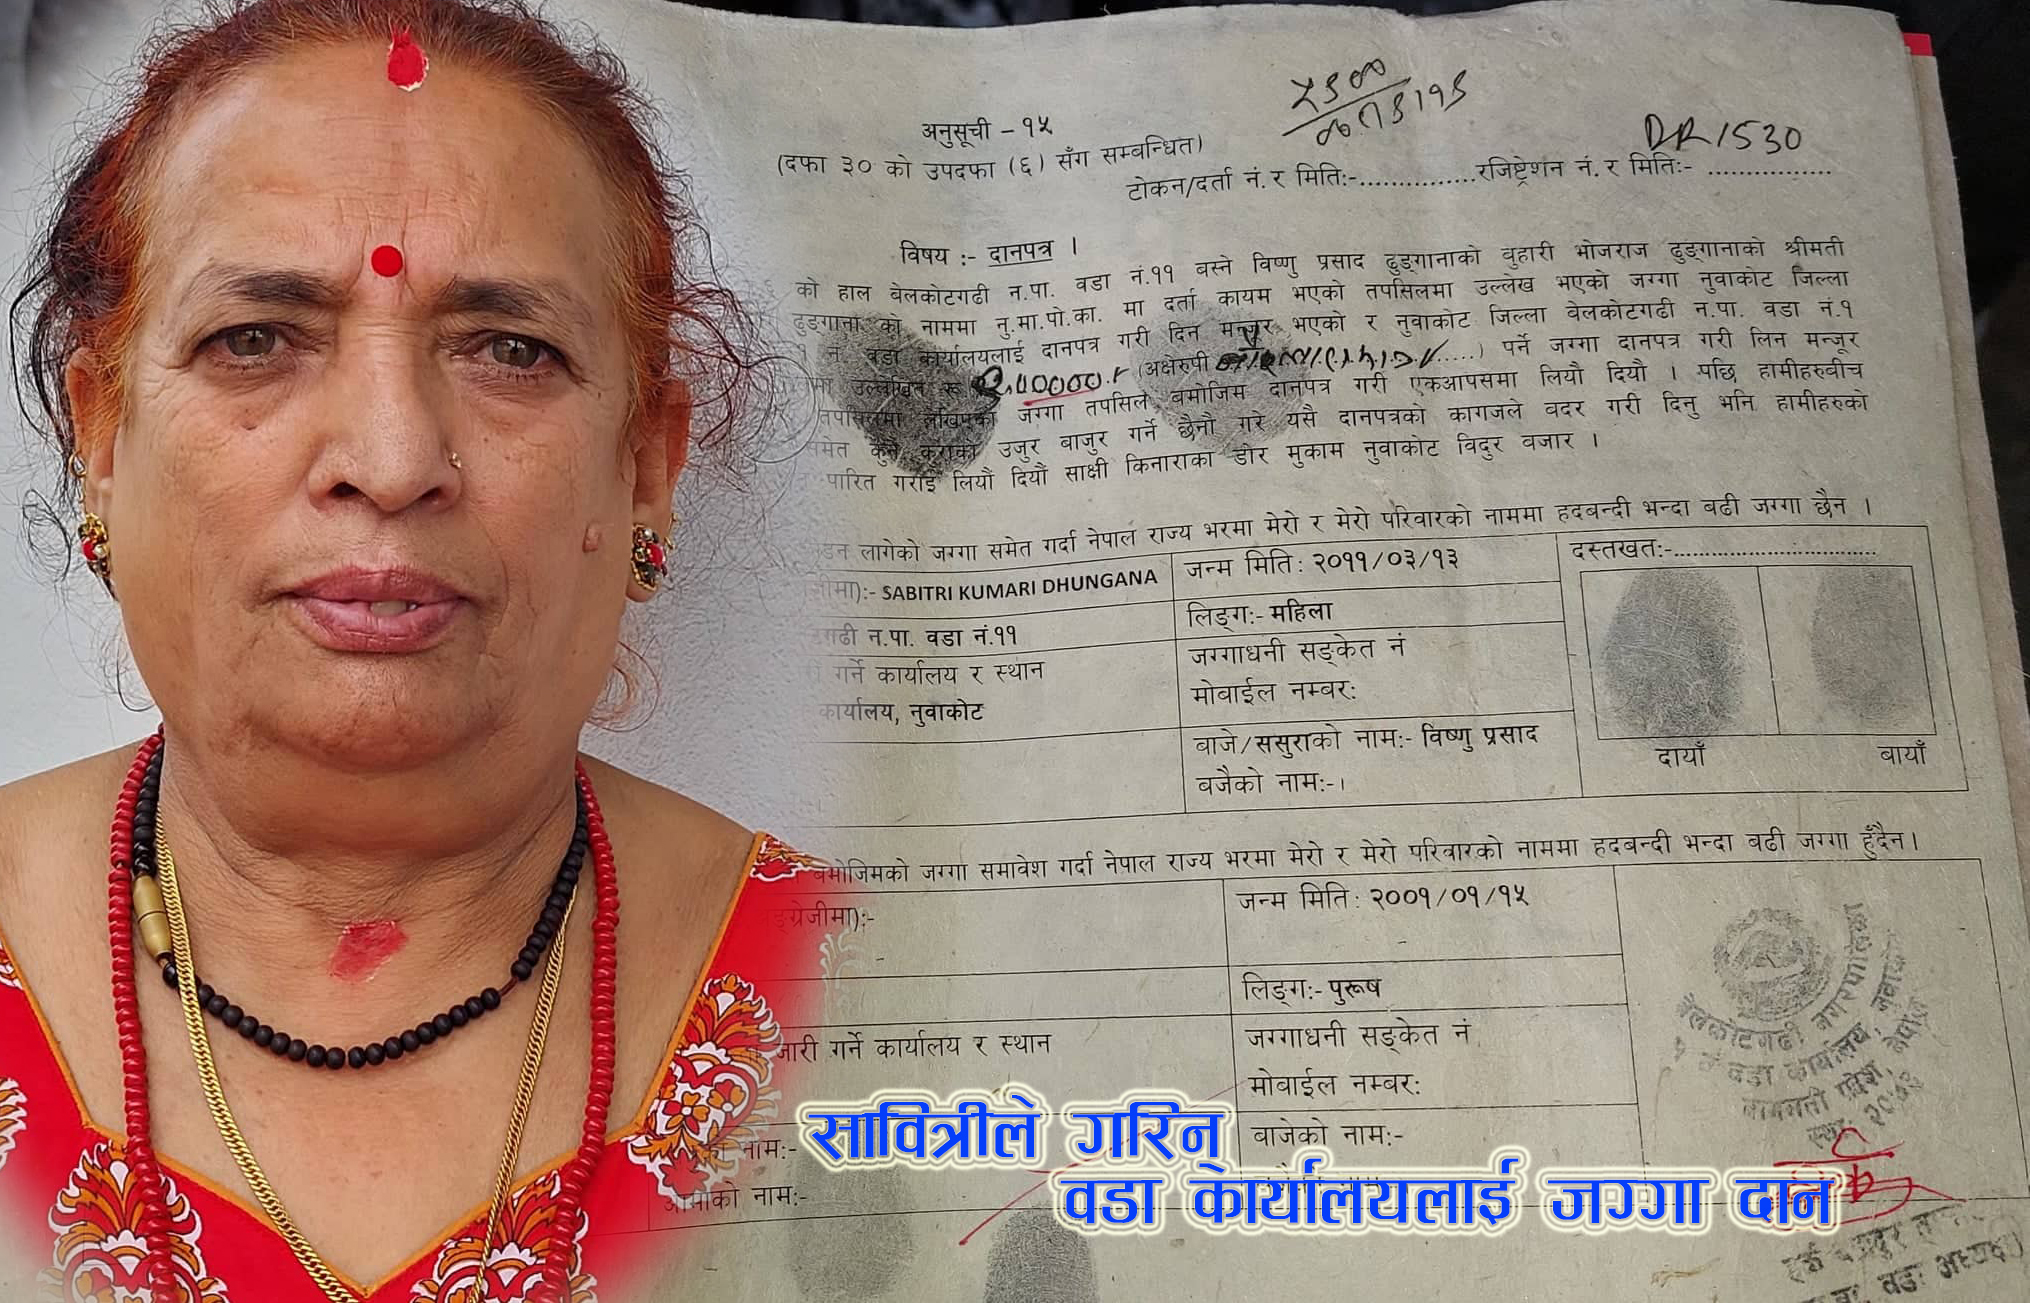 अनुसूची - १५
(दफा ३० को उपदफा (६) सँग सम्बन्धित)
DR 1530
टोकन/दर्ता नं. र मितिः-...............रजिष्ट्रेशन नं. र मितिः- ................
विषय :- दानपत्र ।
को हाल बेलकोटगढी न.पा. वडा नं.११ बस्ने विष्णु प्रसाद ढुङ्गानाको बुहारी भोजराज ढुङ्गानाको श्रीमती
ढुङ्गाना को नाममा नु.मा.पो.का. मा दर्ता कायम भएको तपसिलमा उल्लेख भएको जग्गा नुवाकोट जिल्ला
१ नं. वडा कार्यालयलाई दानपत्र गरी दिन मन्जुर भएको र नुवाकोट जिल्ला बेलकोटगढी न.पा. वडा नं.१
उल्लेखित रू (अक्षेरुपी .....) पर्ने जग्गा दानपत्र गरी लिन मन्जूर
तपसिलमा लेखिएका जग्गा तपसिल बमोजिम दानपत्र गरी एकआपसमा लियौं दियौं । पछि हामीहरुबीच
समेत कुनै कुराको उजुर बाजुर गर्ने छैनौं गरे यसै दानपत्रको कागजले बदर गरी दिनु भनि हामीहरुको
पारित गराई लियौं दियौं साक्षी किनाराका डोर मुकाम नुवाकोट विदुर बजार ।
लागेको जग्गा समेत गर्दा नेपाल राज्य भरमा मेरो र मेरो परिवारको नाममा हदबन्दी भन्दा बढी जग्गा छैन ।
:- SABITRI KUMARI DHUNGANA
जन्म मिति : २०११/०३/१३
दस्तखतः-................................
लिङ्गः- महिला
न.पा. वडा नं.११
जग्गाधनी सङ्केत नं
गर्ने कार्यालय र स्थान
मोबाईल नम्बर:
कार्यालय, नुवाकोट
बाजे/ससुराको नाम:- विष्णु प्रसाद
बजैको नाम:-।
दायाँ बायाँ
बमोजिमको जग्गा समावेश गर्दा नेपाल राज्य भरमा मेरो र मेरो परिवारको नाममा हदबन्दी भन्दा बढी जग्गा हुँदैन।
जन्म मिति : २००१/०१/१५
लिङ्गः- पुरूष
जारी गर्ने कार्यालय र स्थान
जग्गाधनी सङ्केत नं
मोबाईल नम्बर:
नाम:-
बाजेको नाम:-
आमाको नाम:-
बेलकोटगढी नगरपालिका
वडा कार्यालय, नुवाकोट
बागमती प्रदेश, नेपाल
सावित्रीले गरिन्
वडा कार्यालयलाई जग्गा दान
वडा अध्यक्ष